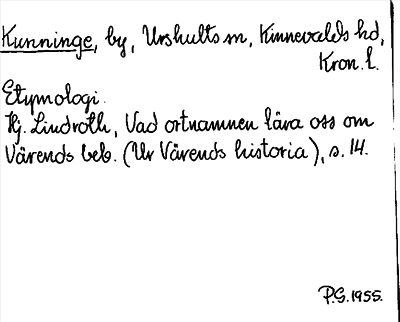 Kunninge, by, Urshults sn, Kinnevalds hd,
Kron. l.
Etymologi.
Hj. Lindroth, Vad ortnamnen lära oss om
Värends beb. (Ur Värends historia), s. 14.
P.G. 1955.